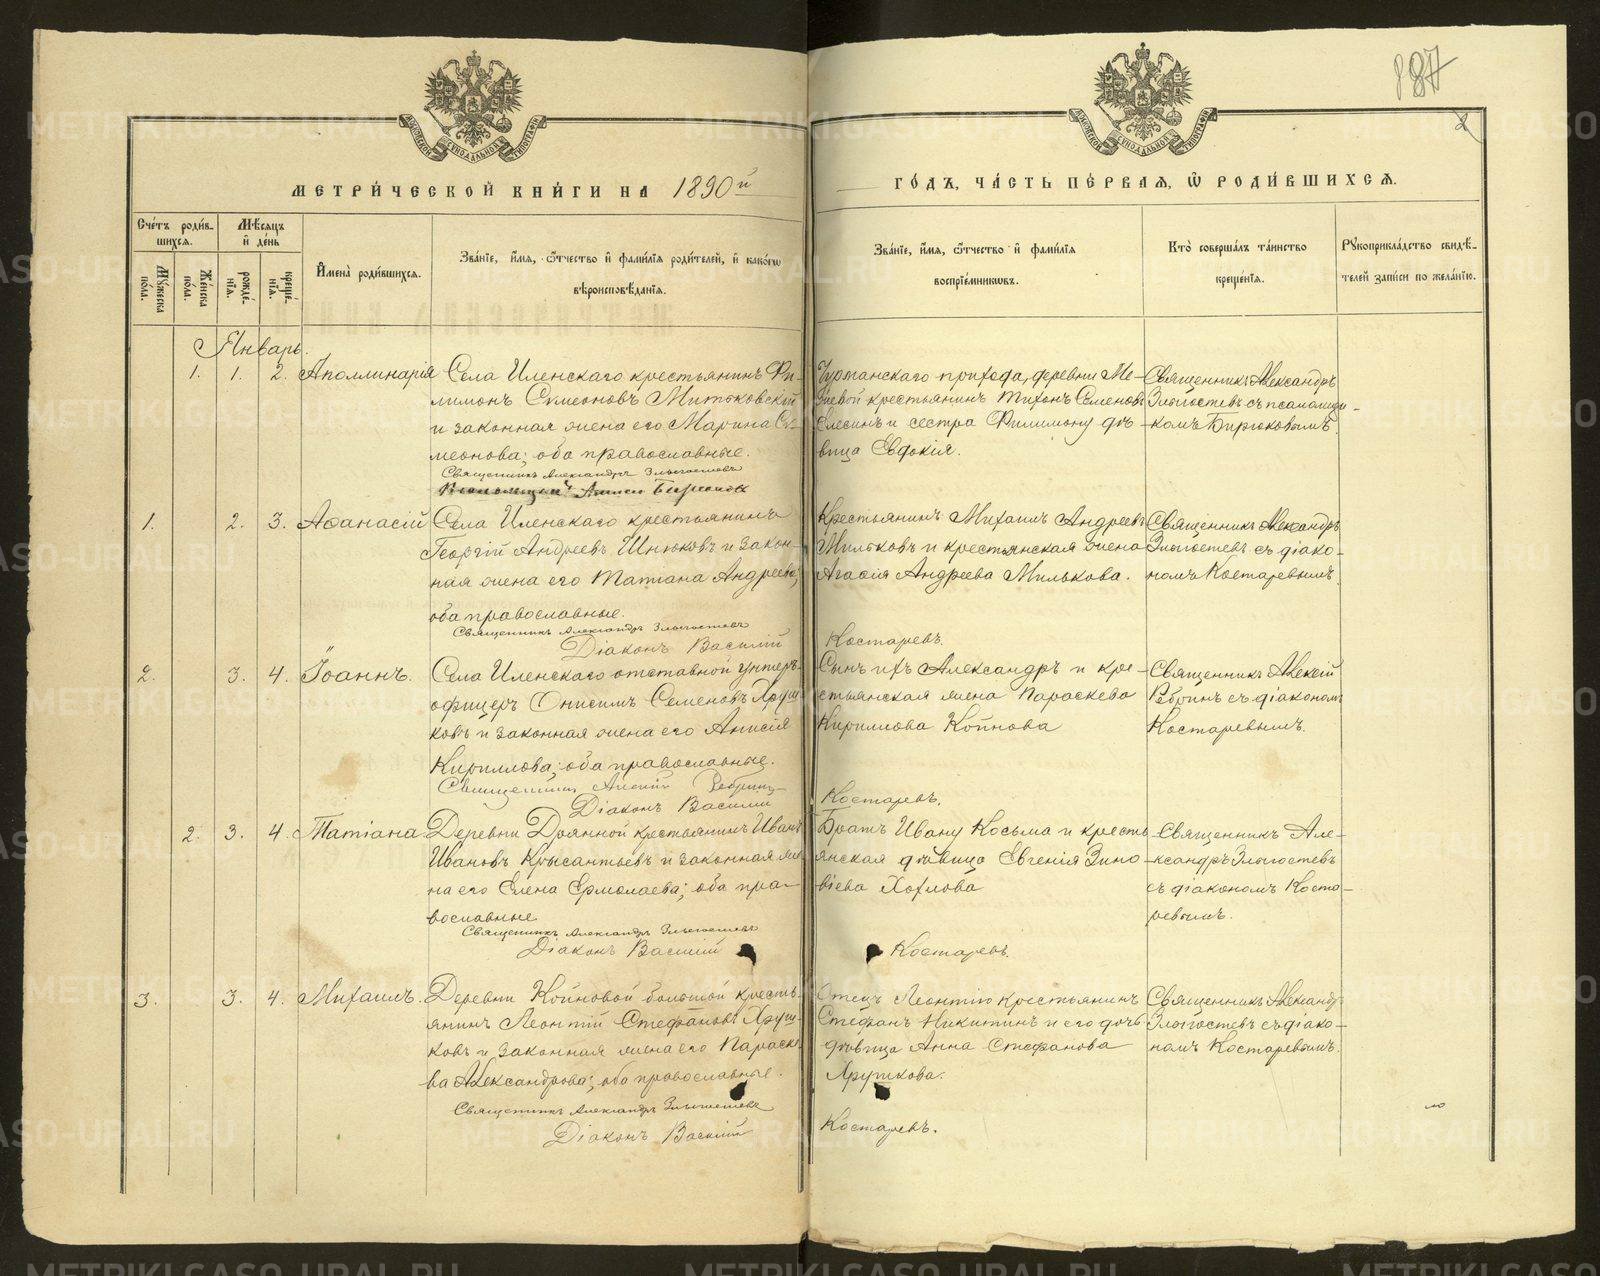 887
2
МОСКОВСКОЙ СИНОДАЛЬНОЙ ТИПОГРАФІИ
МОСКОВСКОЙ СИНОДАЛЬНОЙ ТИПОГРАФІИ
МЕТРИ́ЧЕСКОЙ КНИ́ГИ НА 1890й
ГО́ДЪ, ЧА́СТЬ ПЕ́РВАЯ, Ѿ РОДИ́ВШИХСЯ.
Сче́тъ роди́в-
шихся.
Мѣ́сяцъ
и҆ де́нь
Мꙋ́жеска
пола.
Же́нска
пола.
рожде́-
нїя.
креще́-
нїя.
И҆мена̀ роди́вшихся.
Зва́нїе, и҆́мя, ѻ҆́тчество и҆ фами́лїя роди́телей, и҆ како́гѡ
вѣроисповѣ́данїя.
Зва́нїе, и҆́мя, ѻ҆́тчество и҆ фами́лїя
воспрїе́мникѡвъ.
Кто̀ соверша́лъ та́инство
креще́нїя.
Рꙋкоприкла́дство свидѣ́-
телей за́писи по жела́нїю.
Январь.
1. 1. 2. Аполлинарія
Села Иленскаго крестьянинъ Фи-
лимонъ Симеоновъ Митьковскій
и законная жена его Марина Си-
меонова; оба православные.
Священникъ Александръ Злыгостевъ
Чурманскаго прихода, деревни Ме-
крестьянинъ Тихонъ Семеновъ
Елесинъ и сестра Филимону дѣ-
вица Евдокія.
Священникъ Александръ
Злыгостевъ съ псаломщи-
комъ Бирюковымъ.
1. 2. 3. Аѳанасій
Села Иленскаго крестьянинъ
Георгій Андреевъ Шнюковъ и закон-
ная жена его Татіана Андреева;
оба православные.
Священникъ Александръ Злыгостевъ
Діаконъ Василій
Крестьянинъ Михаилъ Андреевъ
Мильковъ и крестьянская жена
Агаѳія Андреева Милькова.
Костаревъ.
Священникъ Александръ
Злыгостевъ съ діако-
номъ Костаревымъ.
2. 3. 4. Іоаннъ.
Села Иленскаго отставной унтеръ-
офицеръ Онисимъ Семеновъ Хруш-
ковъ и законная жена его Анисія
Кириллова; оба православные.
Священникъ Алексій
Діаконъ Василій
Сынъ ихъ Александръ и кре-
стьянская жена Параскева
Кириллова Койнова
Костаревъ.
Священникъ Алексій
съ діакономъ
Костаревымъ.
2. 3. 4. Татіана.
Деревни крестьянинъ Иванъ
Ивановъ Крысантьевъ и законная же-
на его Елена Ермолаева; оба пра-
вославные
Священникъ Александръ Злыгостевъ
Діаконъ Василій
Братъ Ивану Косьма и кресть-
янская дѣвица Евгенія Зино-
віева Хохлова
Костаревъ.
Священникъ Але-
ксандръ Злыгостевъ
съ діакономъ Коста-
ревымъ.
3. 3. 4. Михаилъ.
Деревни Койновой большой кресть-
янинъ Леонтій Стефановъ Хруш-
ковъ и законная жена его Параске-
ва Александрова; оба православные.
Священникъ Александръ Злыгостевъ
Діаконъ Василій
Отецъ Леонтію крестьянинъ
Стефанъ Никитинъ и его дочь
дѣвица Анна Стефанова
Хрушкова.
Костаревъ.
Священникъ Александръ
Злыгостевъ съ діако-
номъ Костаревымъ.
METRIKI.GASO-URAL.RU